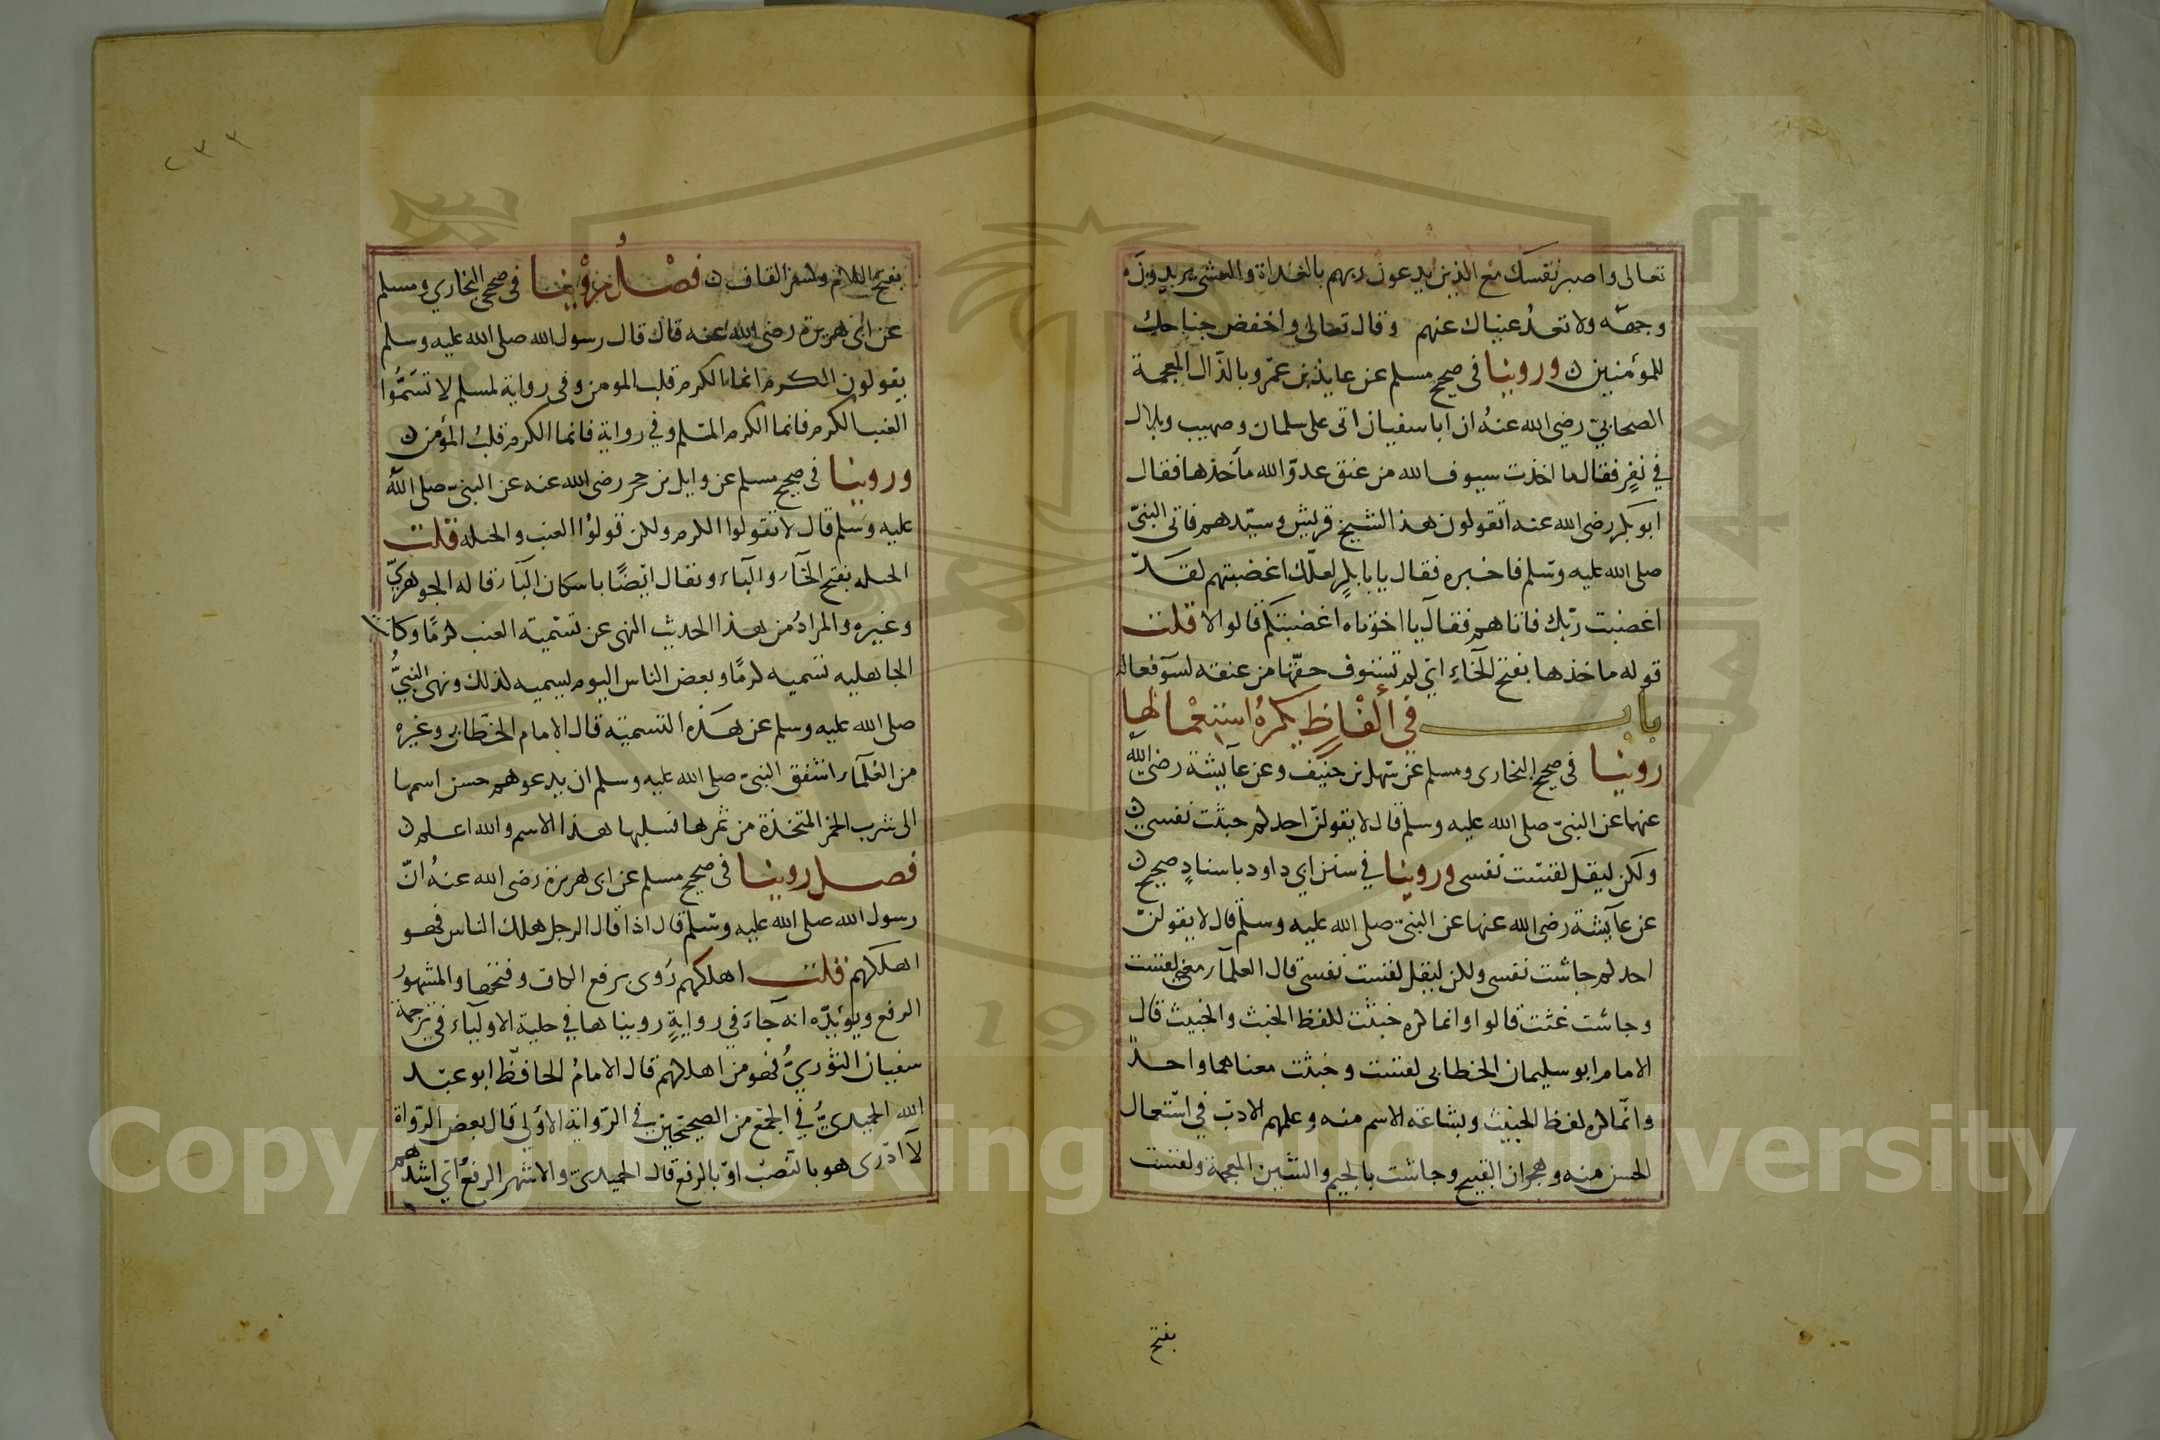 تعالى واصبر نفسك مع الذين يدعون ربهم بالغداة والعشي يريدون
وجهه ولا تعد عيناك عنهم وقال تعالى واخفض جناحك
للمؤمنين وروينا في صحيح مسلم عن عايذ بن عمرو بالذال المعجمة
الصحابي رضي الله عنه ان ابا سفيان اتى على سلمان وصهيب وبلال
في نفر فقال ما اخذت سيوف الله من عنق عدو الله مأخذها فقال
ابو بكر رضي الله عنه اتقولون هذا الشيخ قريش وسيدهم فاتى النبي
صلى الله عليه وسلم فاخبره فقال يا با بكر لعلك اغضبتهم لقد
اغضبت ربك فاتاهم فقال يا اخوتاه اغضبتكم قالوا لا قلت
قوله ماخذها بفتح الخاء اي لم تستوف حقها من عنقه لسوء فعاله
باب في ألفاظ يكره استعمالها
روينا في صحيح البخاري ومسلم عن سهل بن حنيف وعن عايشة رضي الله
عنهما عن النبي صلى الله عليه وسلم قال لا يقولن احدكم خبثت نفسي
ولكن ليقل لقست نفسي وروينا في سنن ابي داود باسناد صحيح
عن عايشة رضي الله عنها عن النبي صلى الله عليه وسلم قال لا يقولن
احدكم جاشت نفسي ولكن ليقل لقست نفسي قال العلماء معنى لقست
وجاشت غثت قالوا وانما كره خبثت للفظ الخبث والخبيث قال
الامام ابو سليمان الخطابي لقست وخبثت معناهما واحد
وانما كره لفظ الخبيث وبشاعة الاسم منه وعلمهم الادب في استعمال
الحسن منه وهجران القبيح وجاشت بالجيم والشين المعجمة ولقست
بفتح
٢٣٣
بفتح اللام وكسر القاف فصل روينا في صحيحي البخاري ومسلم
عن ابي هريرة رضي الله عنه قال قال رسول الله صلى الله عليه وسلم
يقولون الكرم انما الكرم قلب المومن وفي رواية لمسلم لا تسموا
العنب الكرم فانما الكرم المسلم وفي رواية فانما الكرم قلب المؤمن
وروينا في صحيح مسلم عن وايل بن حجر رضي الله عنه عن النبي صلى الله
عليه وسلم قال لا تقولوا الكرم ولكن قولوا العنب والحبله قلت
الحبله بفتح الحاء والباء ويقال ايضا باسكان الباء قاله الجوهري
وغيره والمراد من هذا الحديث النهي عن تسمية العنب كرما وكانت
الجاهليه تسميه كرما وبعض الناس اليوم يسميه كذلك ونهى النبي
صلى الله عليه وسلم عن هذه التسمية قال الامام الخطابي وغيره
من العلماء اشفق النبي صلى الله عليه وسلم ان يدعوهم حسن اسمها
الى شرب الخمر المتخذة من ثمرها فسلبها هذا الاسم والله اعلم
فصل روينا في صحيح مسلم عن ابي هريرة رضي الله عنه ان
رسول الله صلى الله عليه وسلم قال اذا قال الرجل هلك الناس فهو
اهلكهم قلت اهلكهم روى برفع الكاف وفتحها والمشهور
الرفع ويؤيده انه جاء في رواية رويناها في حلية الاولياء في ترجمة
سفيان الثوري فهو من اهلكهم قال الامام الحافظ ابو عبد
الله الحميدي في الجمع من الصحيحين في الرواية الاولى قال بعض الرواة
لا ادري هو بالنصب او بالرفع قال الحميدي والاشهر الرفع اي اشدهم
Copyright © King Saud University